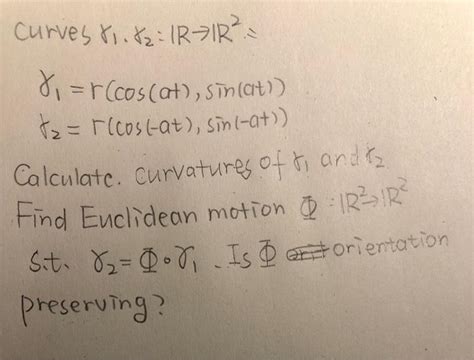 Curves γ₁. γ₂ : IR→IR² :
γ₁ = r(cos(at), sin(at))
γ₂ = r(cos(-at), sin(-at))
Calculate. Curvatures of γ₁ and γ₂
Find Euclidean motion Φ : IR²→IR²
s.t. γ₂ = Φ∘γ₁. Is Φ orientation
preserving?